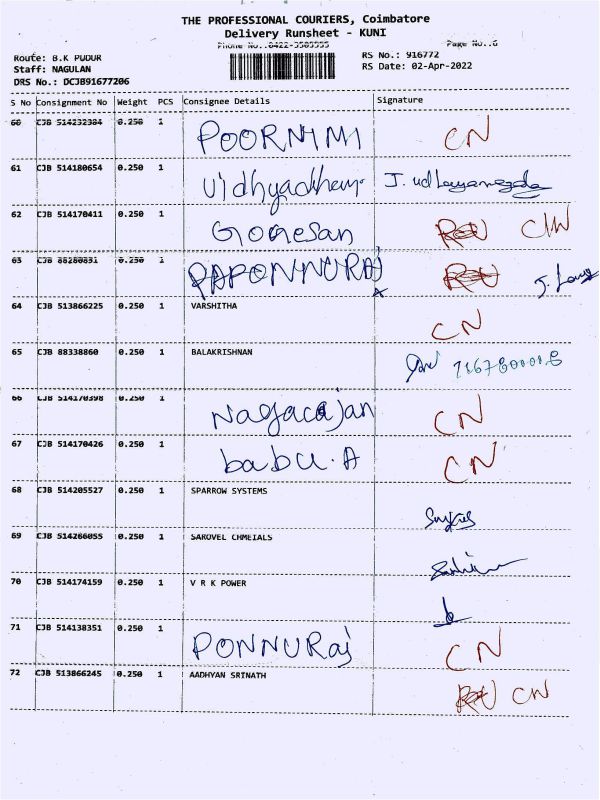 THE PROFESSIONAL COURIERS, Coimbatore
Delivery Runsheet - KUNI
Phone No.:0422-3505555
Page No.:6
Route: B.K PUDUR
RS No.: 916772
Staff: NAGULAN
RS Date: 02-Apr-2022
DRS No.: DCJB91677206
S No Consignment No Weight PCS Consignee Details Signature
60 CJB 514232384 0.250 1 POORNIMI CN
61 CJB 514180654 0.250 1
62 CJB 514170411 0.250 1 Gonesan CN
63 CJB 88280831 0.250 1 PAPONNURAJ
64 CJB 513866225 0.250 1 VARSHITHA CN
65 CJB 88338860 0.250 1 BALAKRISHNAN
66 CJB 514170398 0.250 1 Nagarajan CN
67 CJB 514170426 0.250 1 babu.A CN
68 CJB 514205527 0.250 1 SPARROW SYSTEMS
69 CJB 514266055 0.250 1 SAROVEL CHMEIALS
70 CJB 514174159 0.250 1 V R K POWER
71 CJB 514138351 0.250 1 PONNURaj CN
72 CJB 513866245 0.250 1 AADHYAN SRINATH CN